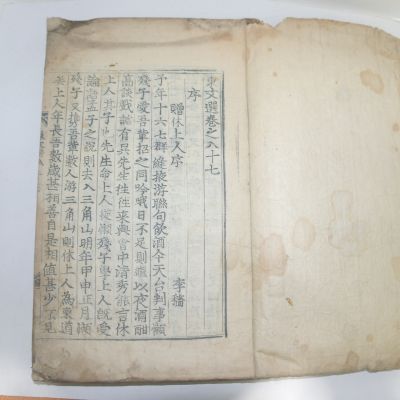 東文選卷之八十七
序
贈休上人序 李穡
予年十六七群縫掖游聯句飲酒今天台判事懶
殘子愛吾輩招之同吟哦日不足則繼以夜酒酣
高談戲謔有吳先生往往來與當中清秀能言休
上人其子也先生命上人從懶殘子學上人旣受
論語孟子之說則去入三角山明年甲申正月懶
殘子又携吾輩數人游三角山則休上人為東道
矣上人年長吾數歲甚相善自是相值甚少見